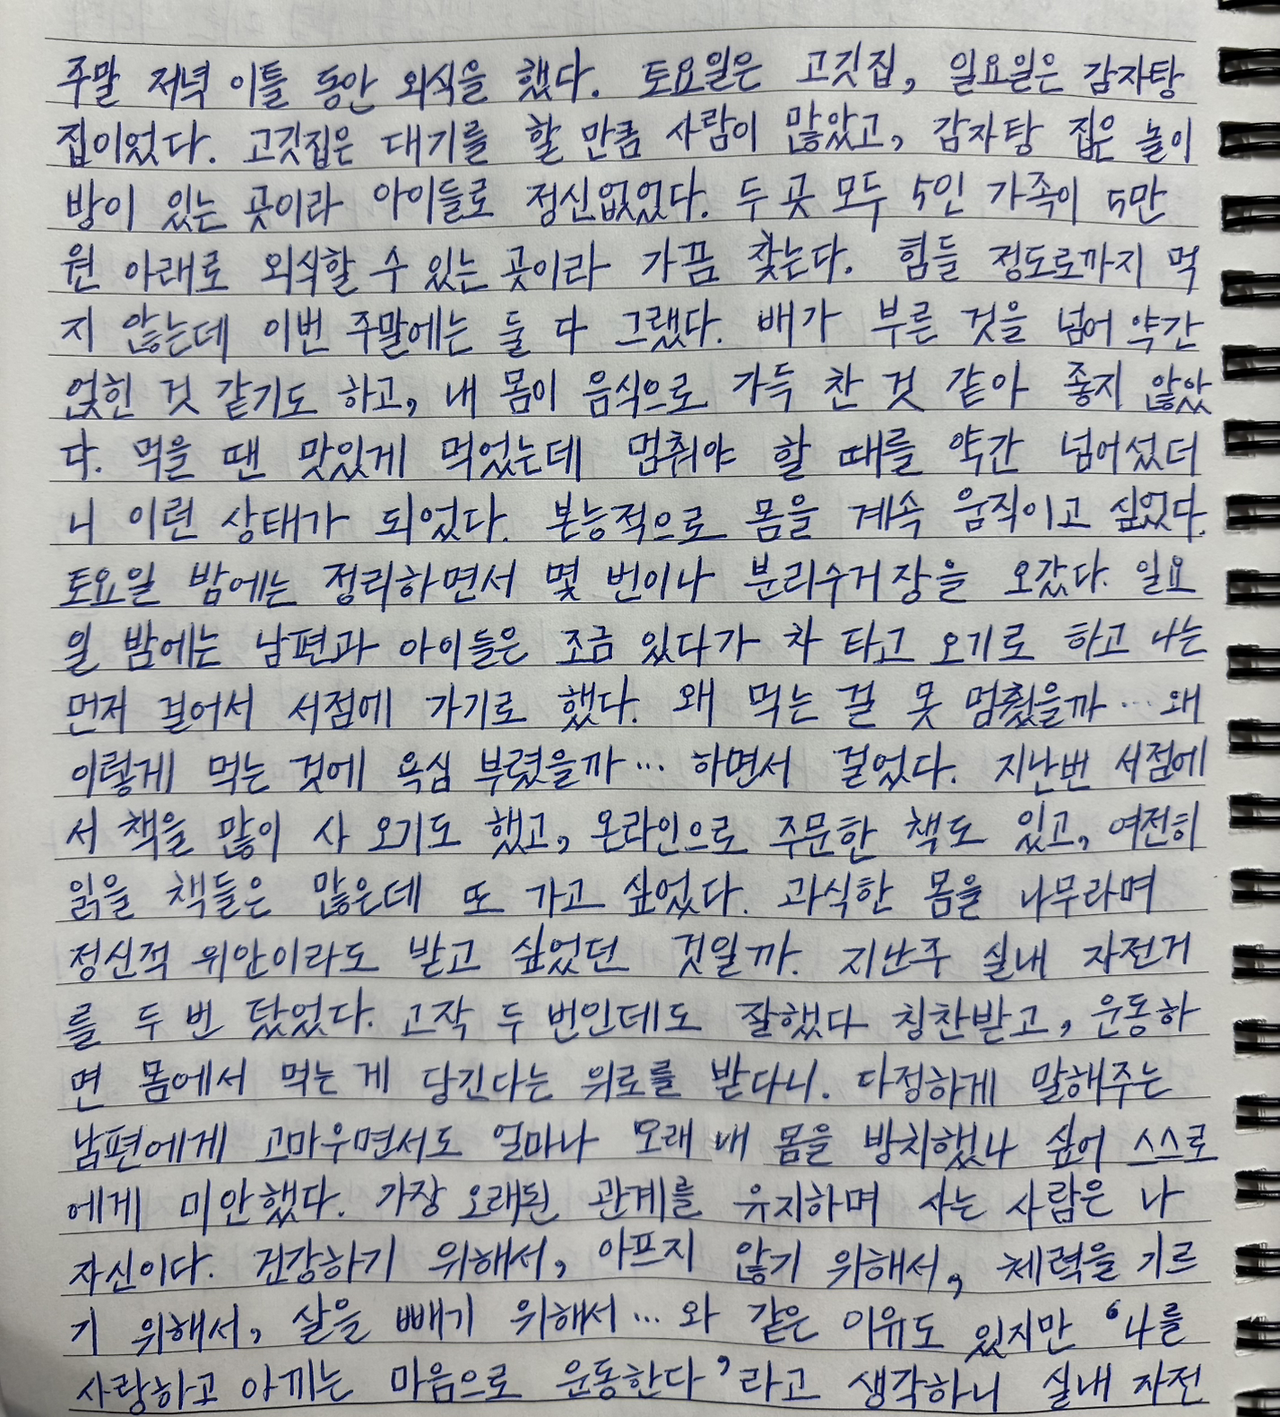 주말 저녁 이틀 동안 외식을 했다. 토요일은 고깃집, 일요일은 감자탕
집이었다. 고깃집은 대기를 할 만큼 사람이 많았고, 감자탕 집은 놀이
방이 있는 곳이라 아이들로 정신없었다. 두 곳 모두 5인 가족이 5만
원 아래로 외식할 수 있는 곳이라 가끔 찾는다. 힘들 정도로까지 먹
지 않는데 이번 주말에는 둘 다 그랬다. 배가 부른 것을 넘어 약간
얹힌 것 같기도 하고, 내 몸이 음식으로 가득 찬 것 같아 좋지 않았
다. 먹을 땐 맛있게 먹었는데 멈춰야 할 때를 약간 넘어섰더
니 이런 상태가 되었다. 본능적으로 몸을 계속 움직이고 싶었다.
토요일 밤에는 정리하면서 몇 번이나 분리수거장을 오갔다. 일요
일 밤에는 남편과 아이들은 조금 있다가 차 타고 오기로 하고 나는
먼저 걸어서 서점에 가기로 했다. 왜 먹는 걸 못 멈췄을까… 왜
이렇게 먹는 것에 욕심 부렸을까… 하면서 걸었다. 지난번 서점에
서 책을 많이 사 오기도 했고, 온라인으로 주문한 책도 있고, 여전히
읽을 책들은 많은데 또 가고 싶었다. 과식한 몸을 나무라며
정신적 위안이라도 받고 싶었던 것일까. 지난주 실내 자전거
를 두 번 탔었다. 고작 두 번인데도 잘했다 칭찬받고, 운동하
면 몸에서 먹는 게 당긴다는 위로를 받다니. 다정하게 말해주는
남편에게 고마우면서도 얼마나 오래 내 몸을 방치했나 싶어 스스로
에게 미안했다. 가장 오래된 관계를 유지하며 사는 사람은 나
자신이다. 건강하기 위해서, 아프지 않기 위해서, 체력을 기르
기 위해서, 살을 빼기 위해서… 와 같은 이유도 있지만 ‘나를
사랑하고 아끼는 마음으로 운동한다’라고 생각하니 실내 자전